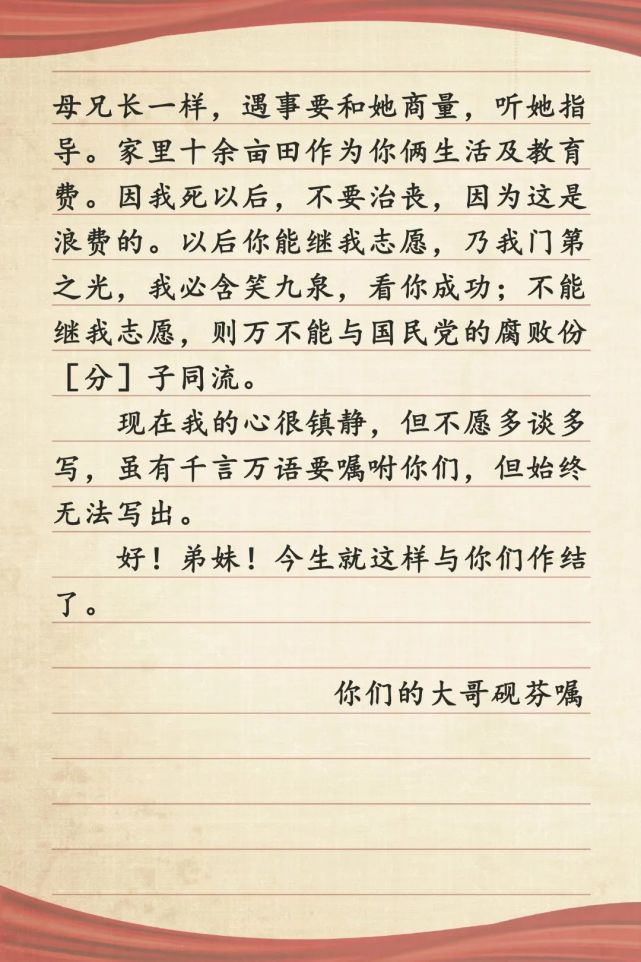 母兄长一样，遇事要和她商量，听她指
导。家里十余亩田作为你俩生活及教育
费。因我死以后，不要治丧，因为这是
浪费的。以后你能继我志愿，乃我门第
之光，我必含笑九泉，看你成功；不能
继我志愿，则万不能与国民党的腐败份
［分］子同流。
现在我的心很镇静，但不愿多谈多
写，虽有千言万语要嘱咐你们，但始终
无法写出。
好！弟妹！今生就这样与你们作结
了。
你们的大哥砚芬嘱